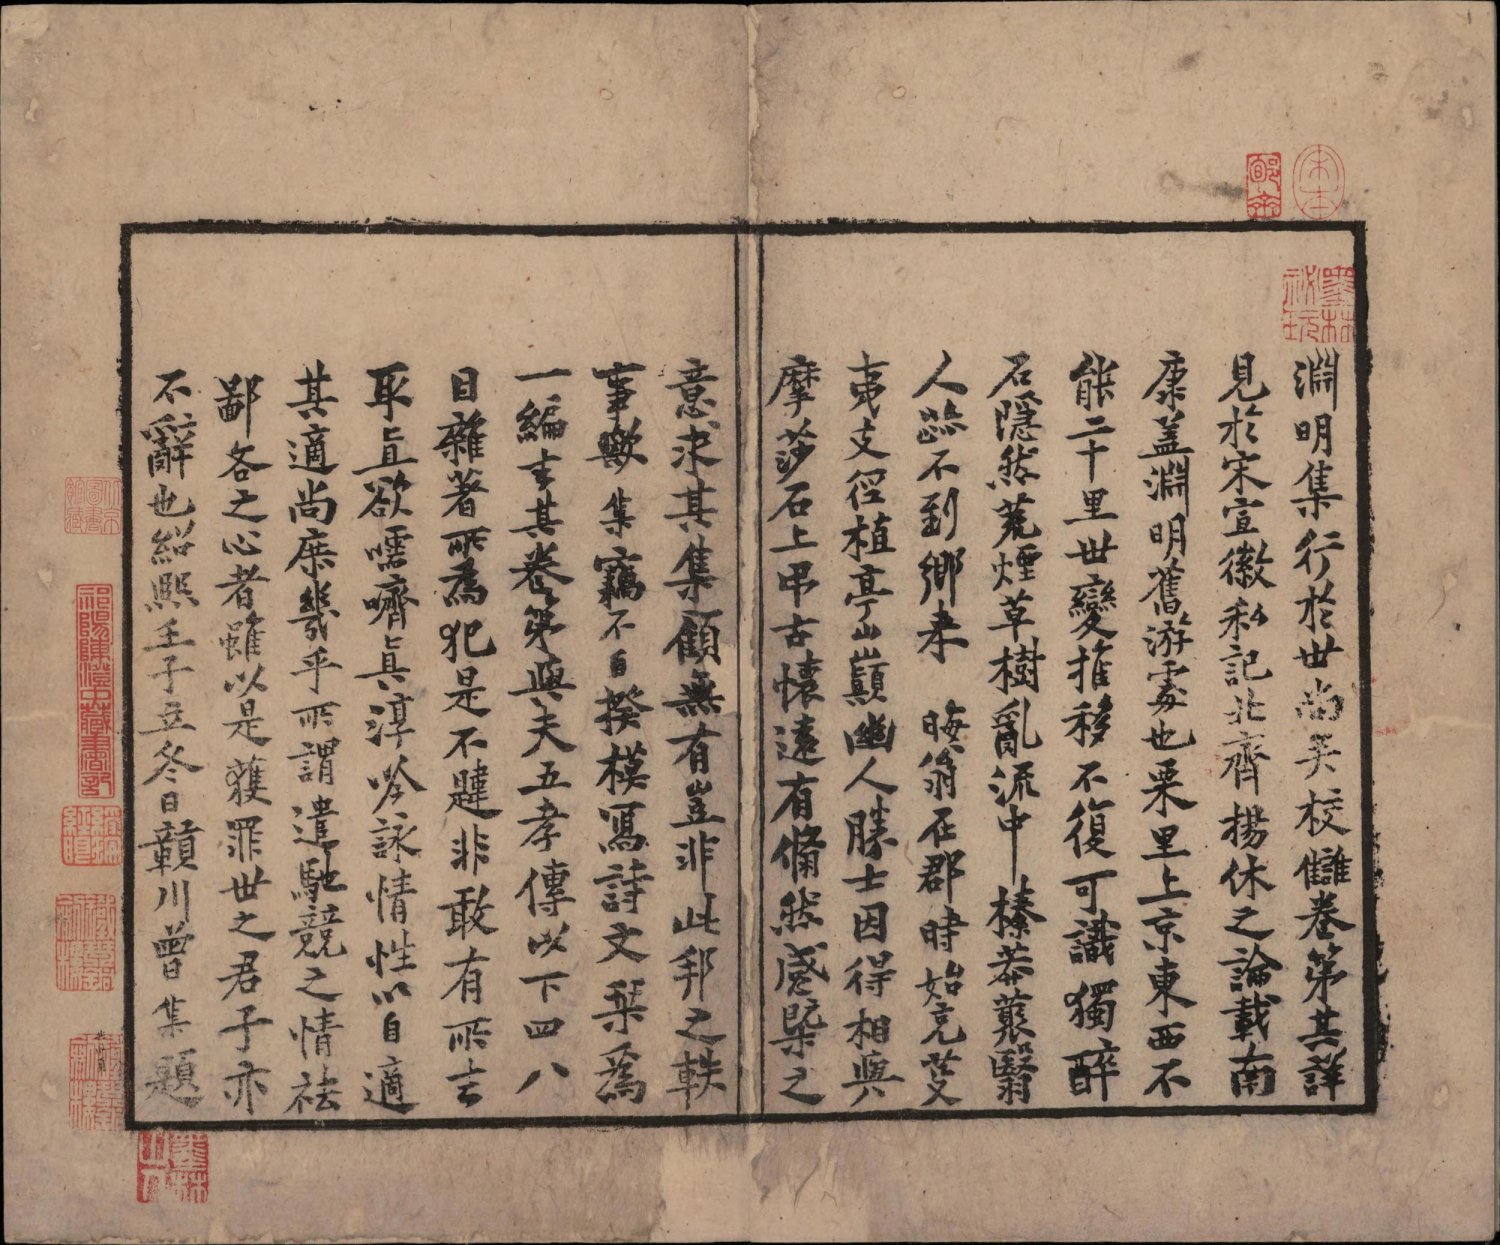 淵明集行於世尚矣校讎卷第其詳
見於宋宣徽私記北齊楊休之論載南
康蓋淵明舊游處也栗里上京東西不
能二十里世變推移不復可識獨醉
石隱然荒煙草樹亂流中榛莽藂翳
人跡不到鄉来 晦翁在郡時始克芟
夷支徑植亭山巔幽人勝士因得相與
摩莎石上弔古懷遠有翛然感槩之
意求其集顧無有豈非此邦之軼
事歟集竊不自揆模寫詩文栞為
一編去其卷第與夫五孝傳以下四八
目雜著所為犯是不韙非敢有所去
取直欲嚅嚌真淳吟詠情性以自適
其適尚庶幾乎所謂遣馳競之情祛
鄙吝之心者雖以是獲罪世之君子亦
不辭也紹熙壬子立冬日贛川曾集題
墨林秘玩
祁陽陳澄中藏書記